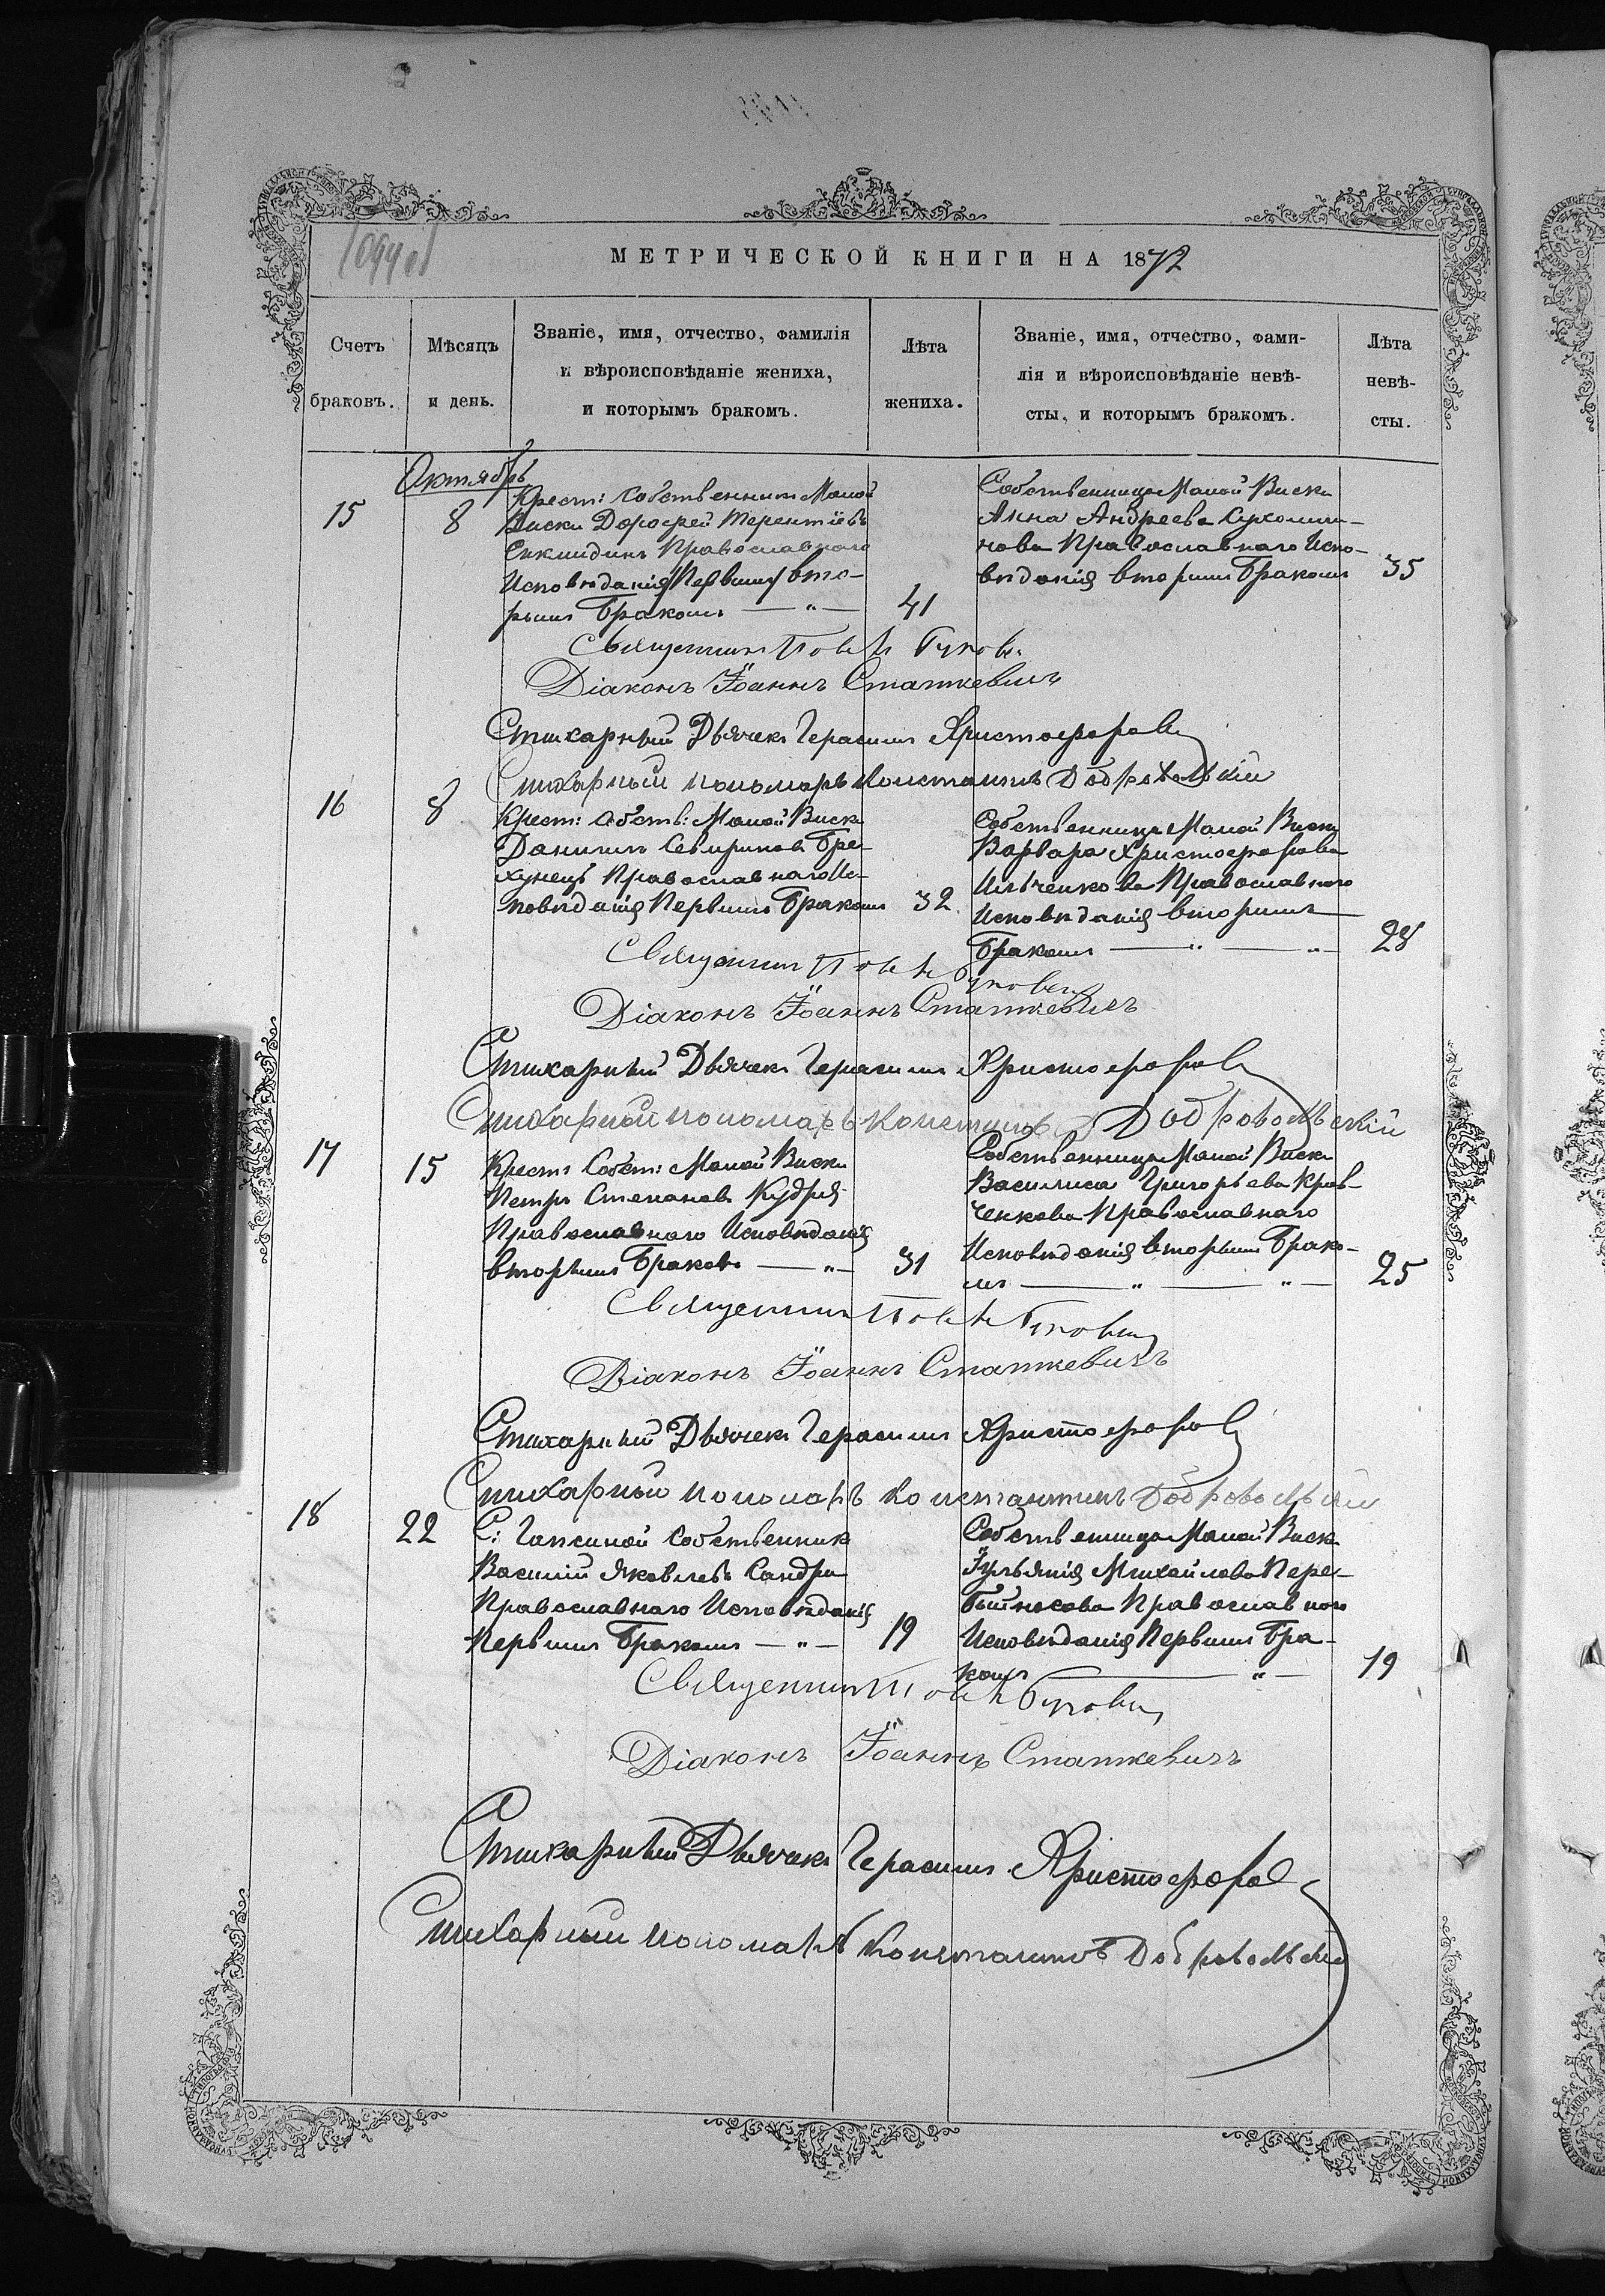 МЕТРИЧЕСКОЙ КНИГИ НА 1872
Счетъ браковъ.
Мѣсяцъ и день.
Званіе, имя, отчество, фамилія
и вѣроисповѣданіе жениха,
и которымъ бракомъ.
Лѣта жениха.
Званіе, имя, отчество, фами-
лія и вѣроисповѣданіе невѣ-
сты, и которымъ бракомъ.
Лѣта невѣ-
сты.
Октябрь
15
8
Крест: Собственникъ Малой
Виски Дорофей Терентіевъ
Православнаго
Исповѣданія Первымъ вто-
рымъ Бракомъ — „ —
41
Собственница Малой Виски
Анна Андреева Сухомли-
нова Православнаго Испо-
вѣданія вторымъ Бракомъ
35
Священникъ
Діаконъ Іоаннъ Статкевичъ
Стихарный Дьячекъ Герасимъ Христофоровъ
Стихарный пономарь Константинъ Добровольскій
16
8
Крест: Собств: Малой Виски
Даніилъ Севириновъ Бре-
хунецъ Православнаго Ис-
повѣданія Первымъ Бракомъ
32
Собственница Малой Виски
Варвара Христофорова
Ильченкова Православнаго
Исповѣданія вторымъ
Бракомъ — „ — „ —
28
Священникъ
Діаконъ Іоаннъ Статкевичъ
Стихарный Дьячекъ Герасимъ Христофоровъ
Стихарный пономарь Константинъ Добровольскій
17
15
Крест: Собст: Малой Виски
Петръ Степановъ Кудря
Православнаго Исповѣданія
вторымъ Бракомъ — „ —
31
Собственница Малой Виски
Василиса Григорьева Крав-
ченкова Православнаго
Исповѣданія вторымъ Брако-
мъ — „ — „ —
25
Священникъ
Діаконъ Іоаннъ Статкевичъ
Стихарный Дьячекъ Герасимъ Христофоровъ
Стихарный пономарь Константинъ Добровольскій
18
22
С: собственникъ
Василій Яковлевъ Сандра
Православнаго Исповѣданія
Первымъ Бракомъ — „ —
19
Собственница Малой Виски
Іульянія Михайлова Пере-
Православнаго
Исповѣданія Первымъ Бра-
комъ — „ —
19
Священникъ
Діаконъ Іоаннъ Статкевичъ
Стихарный Дьячекъ Герасимъ Христофоровъ
Стихарный пономарь Константинъ Добровольскій